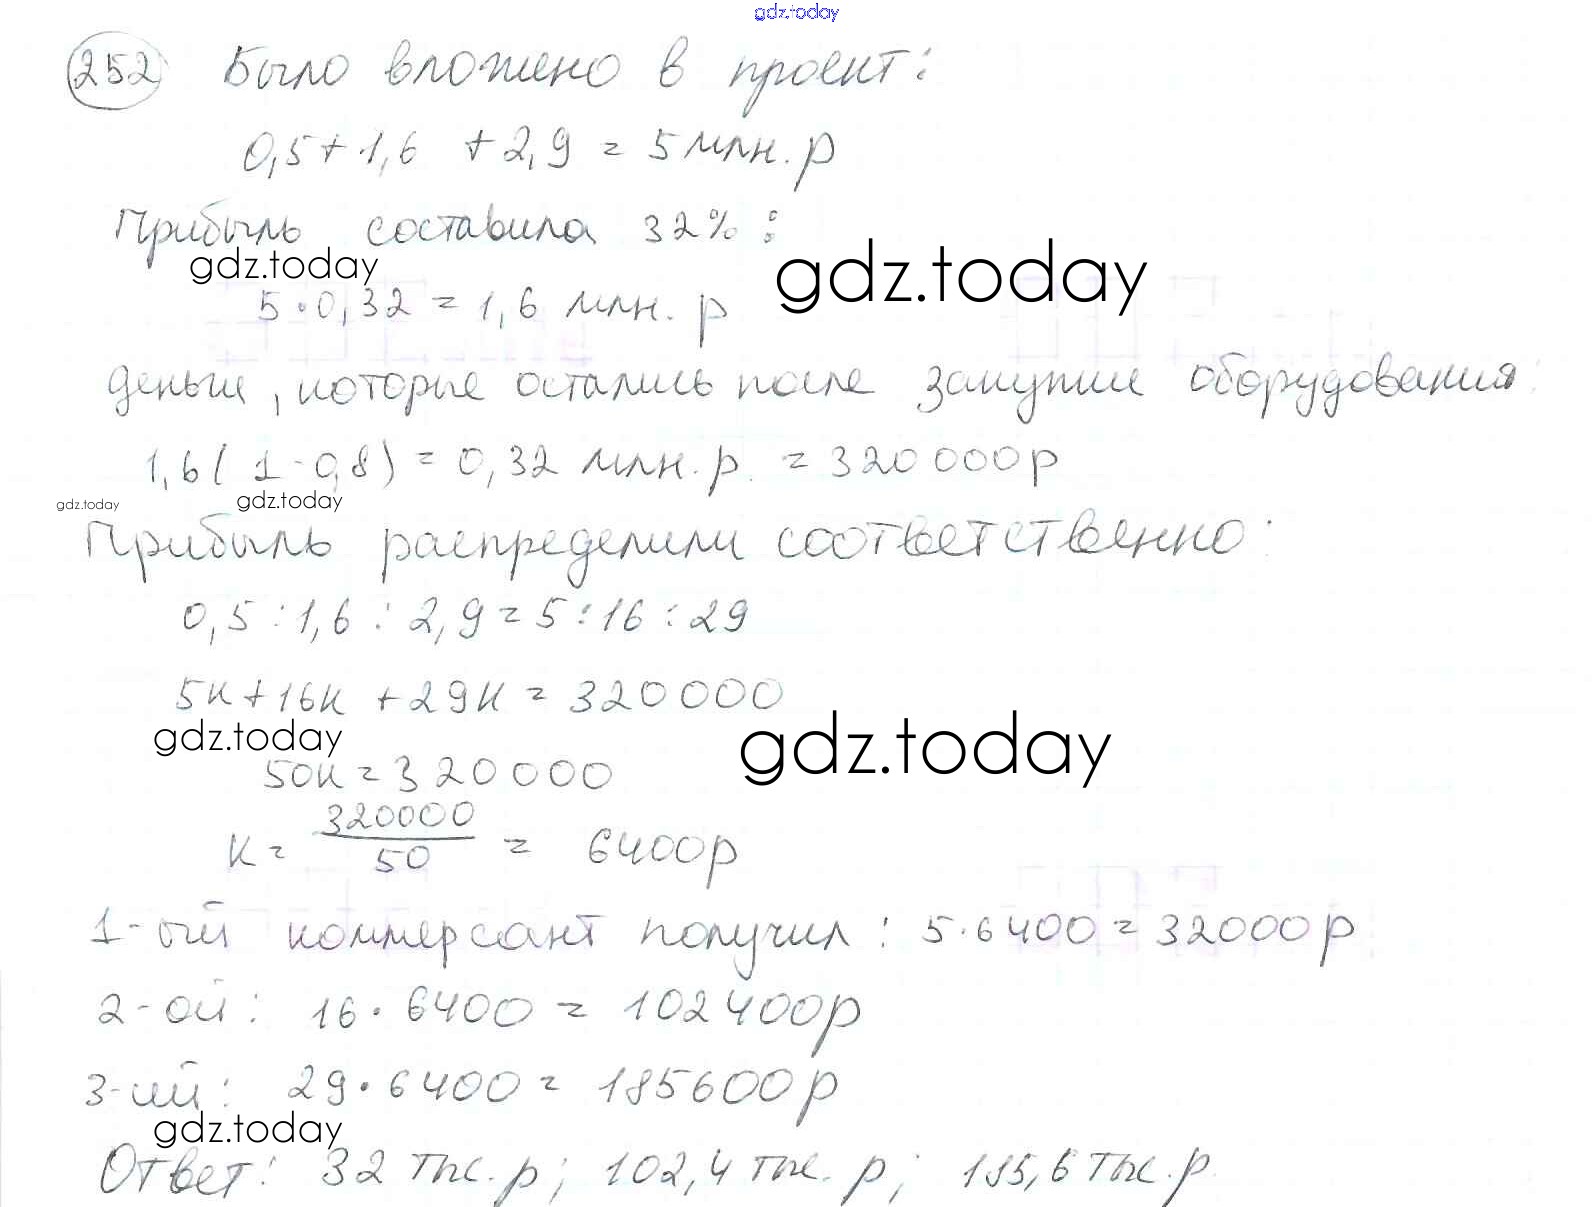 gdz.today
252 Было вложено в проект:
0,5+1,6 +2,9 = 5 млн. р
Прибыль составила 32% :
gdz.today
gdz.today
5·0,32 = 1,6 млн. р
деньги, которые остались после закупки оборудования:
1,6(1-0,8) = 0,32 млн. р. = 320 000р
gdz.today
gdz.today
Прибыль распределили соответственно:
0,5:1,6:2,9=5:16:29
5к+16к +29к = 320000
gdz.today
gdz.today
50к=320000
к= 320000/50 = 6400р
1-ый коммерсант получил: 5·6400=32000р
2-ой: 16·6400 = 102400р
3-ий: 29·6400= 185600р
gdz.today
Ответ: 32 тыс. р; 102,4 тыс. р; 185,6 тыс. р